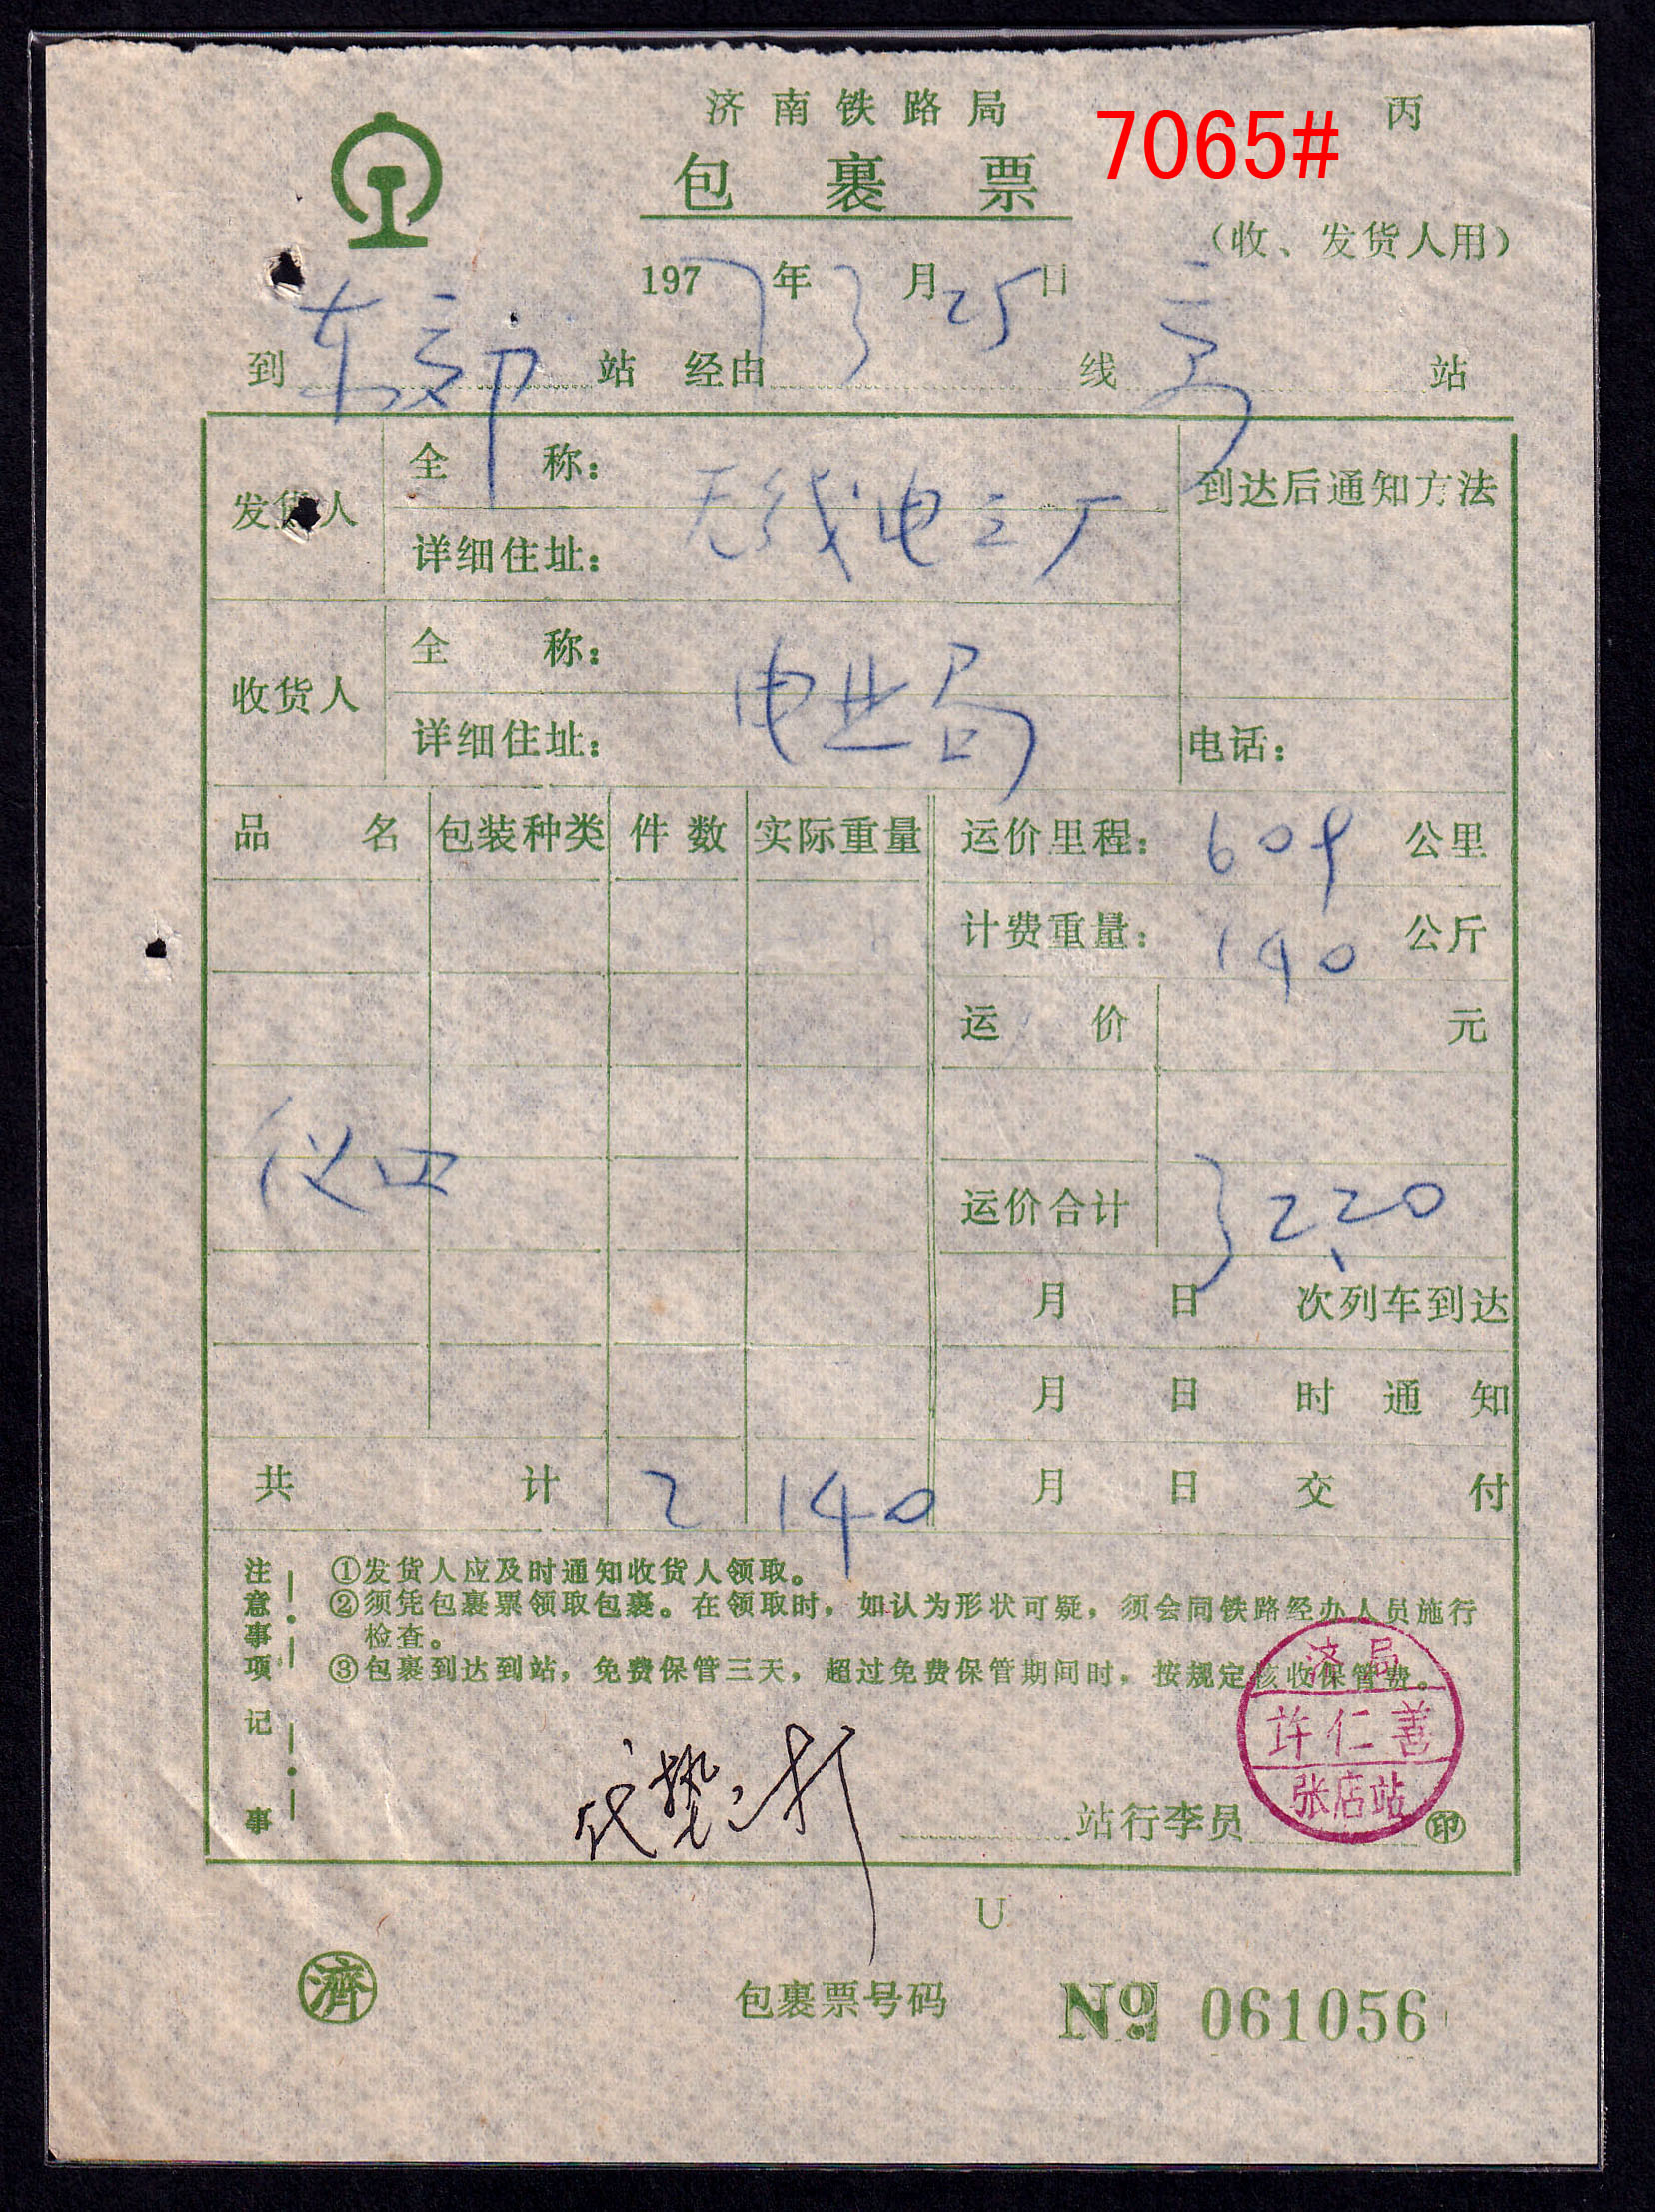 济南铁路局
7065#
丙
包裹票
（收、发货人用）
1977年3月25日
到 站 经由 线 站
发货人
全 称：
无线电三厂
详细住址：
到达后通知方法
收货人
全 称：
电业局
详细住址：
电话：
品 名 包装种类 件数 实际重量 运价里程：609公里
计费重量：140公斤
运 价 元
仪四
运价合计 32.20
月 日 次列车到达
月 日 时 通 知
共 计 2 140 月 日 交 付
注意事项：
①发货人应及时通知收货人领取。
②须凭包裹票领取包裹。在领取时，如认为形状可疑，须会同铁路经办人员施行
检查。
③包裹到达到站，免费保管三天，超过免费保管期间时，按规定核收保管费。
记事：
站行李员 印
济局
许仁善
张店站
U
濟
包裹票号码 № 061056